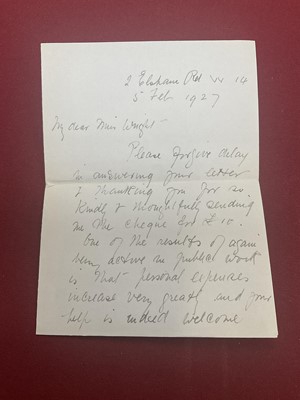 2 Elsham Rd W 14
5 Feb 1927
My dear Miss Wright
Please forgive delay
in answering your letter
& thanking you for so
kindly & thoughtfully sending
me the cheque for £10.
One of the results of again
being active in public work
is that personal expenses
increase very greatly and your
help is indeed welcome